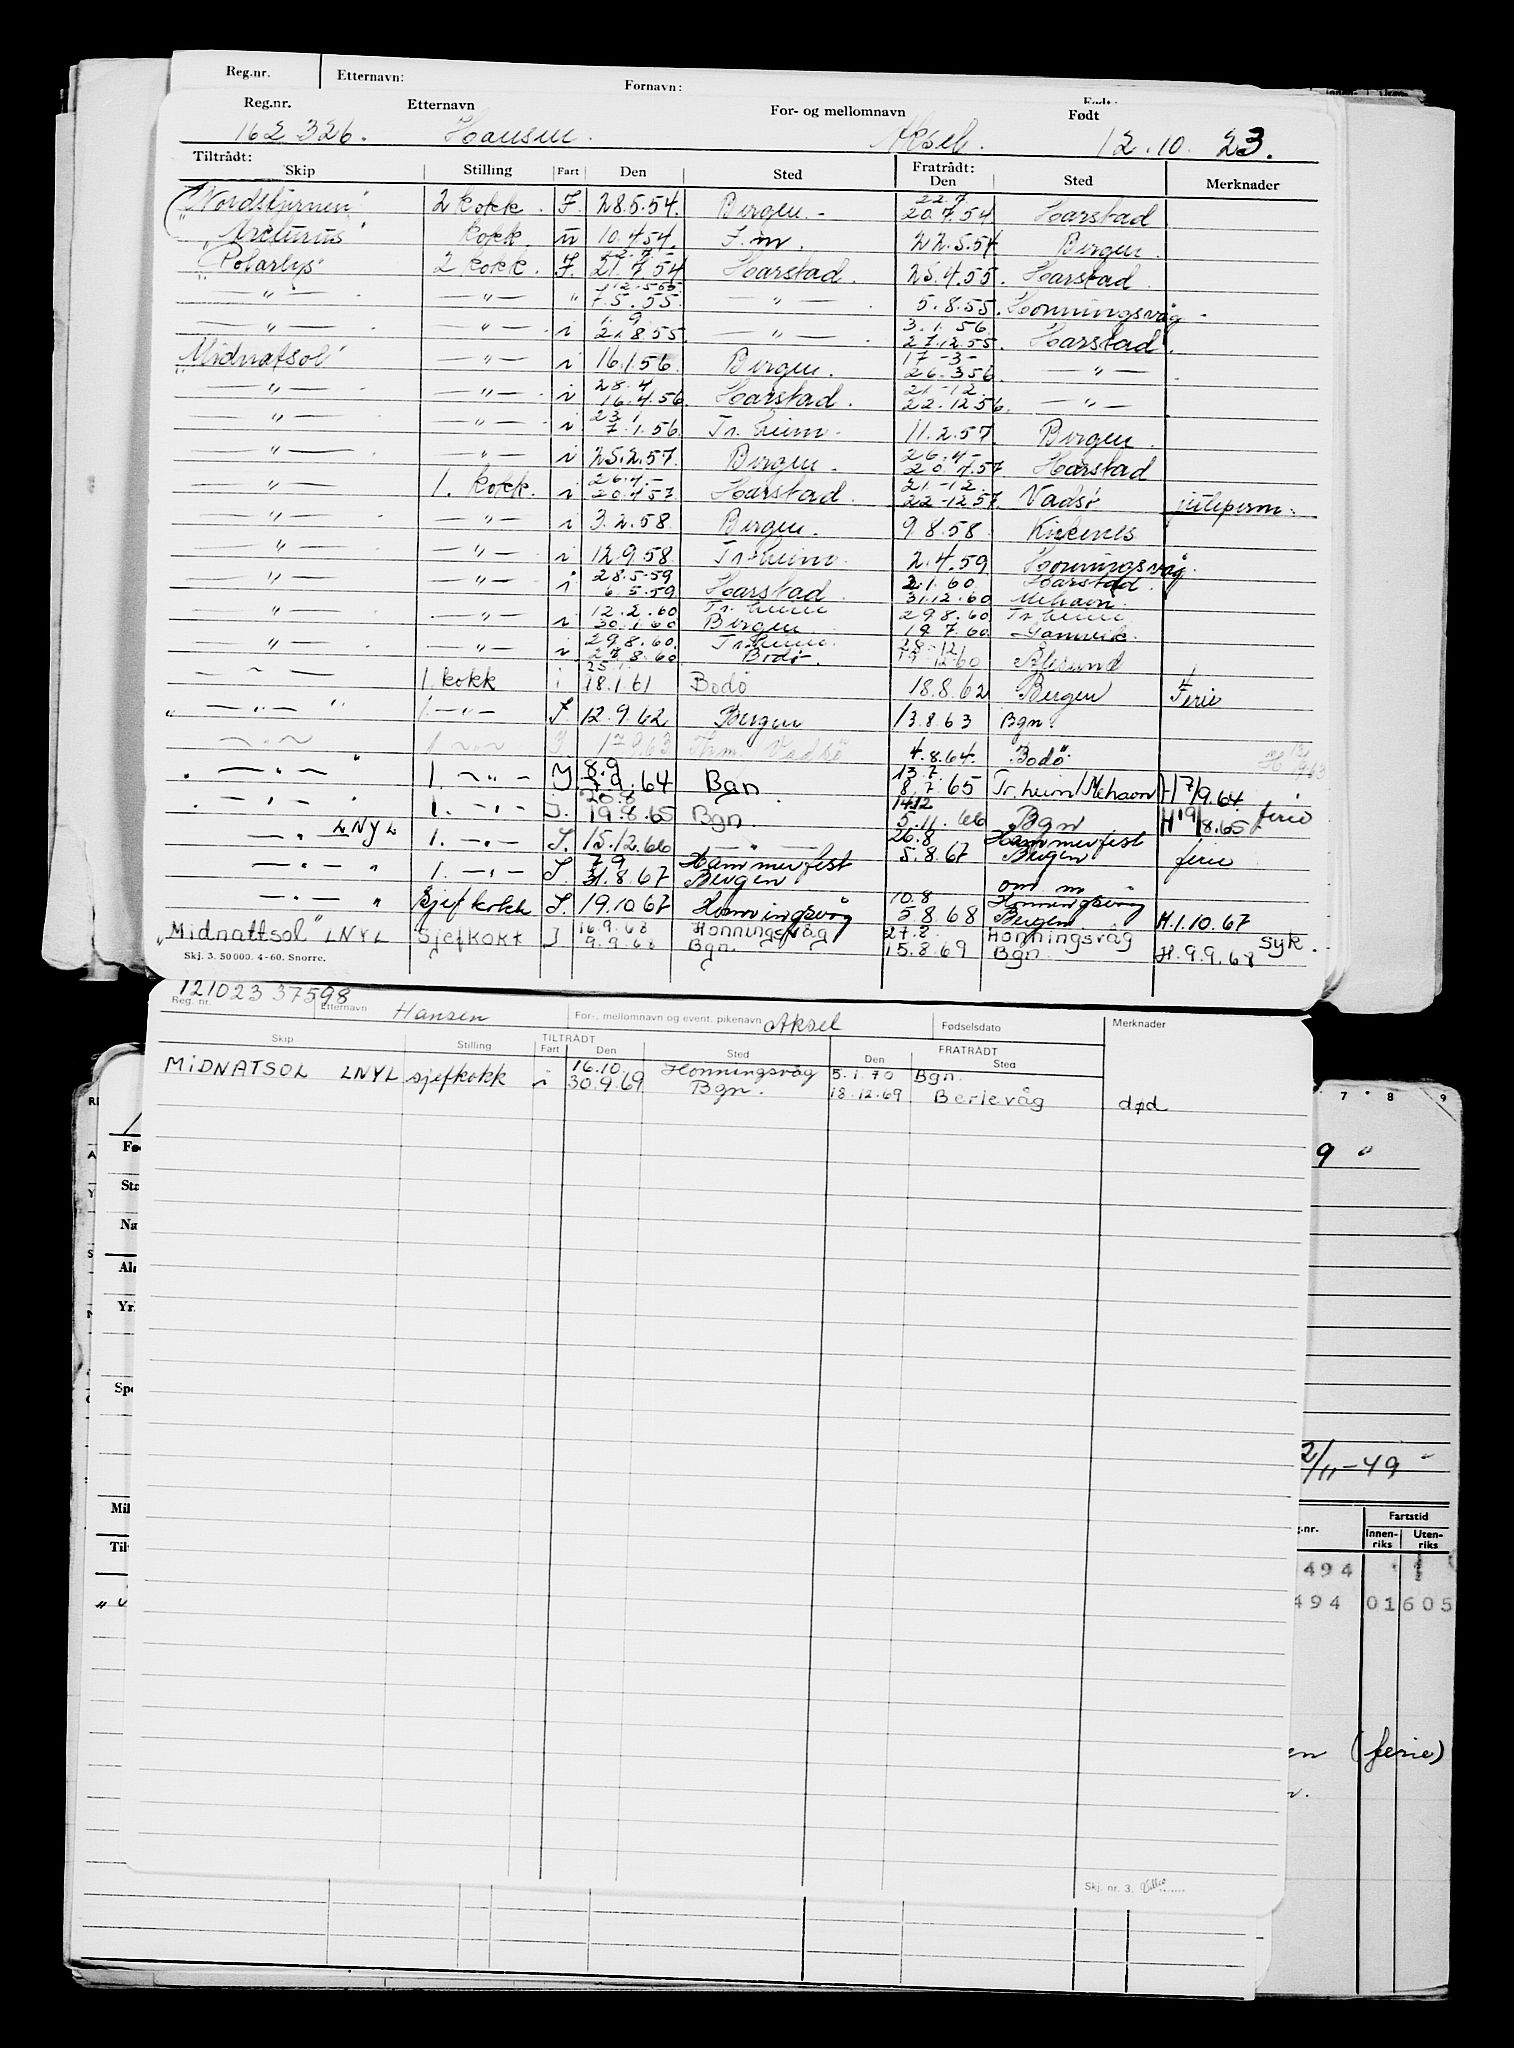 Reg.nr. Etternavn: Fornavn:
Reg.nr. Etternavn For- og mellomnavn Født
162326. Hansen. Aksel. 12.10.23.
Tiltrådt: Fratrådt:
Skip Stilling Fart Den Sted Den Sted Merknader
22.7
"Nordstjernen" 2 kokk. I. 28.5.54. Bergen - 20.7.54 Harstad
"Arcturus" kokk. u 10.4.54. T.m. 22.5.54 Bergen.
"Polarlys" 2 kokk. I. 21.7.54 Harstad. 25.4.55. Harstad.
— " — — " — " 7.5.55. — " — 5.8.55. Honningsvåg
1.9. 3.1.56.
— " — — " — i 21.8.55. — " — 27.12.55. Harstad.
17-3-
"Midnatsol" — " — i 16.1.56. Bergen. 26.3.56. — " —
28.4 21-12.
— " — — " — i 16.4.56. Harstad. 22.12.56. — " —
23.1
— " — — " — i 7.1.56. Tr.heim. 11.2.57. Bergen.
26.4-
— " — — " — i 25.2.57. Bergen. 20.4.57 Harstad
26.4.- 21.-12.
— " — 1. kokk. i 20.4.57. Harstad. 22-12.57. Vadsø juleperm.
— " — — " — i 3.2.58. Bergen. 9.8.58. Kirkenes
— " — — " — i 12.9.58. Tr.heim. 2.4.59 Honningsvåg.
28.5.59 2.1.60. Harstad.
— " — — " — i 6.5.59 Harstad. 31.12.60 Mehavn.
12.2.60 Tr.heim 29.8.60. Tr.heim
— " — — " — i 30.1.60 Bergen 19.7.60 Gamvik.
29.8.60. Tr.heim 28-12
— " — — " — i 27.8.60 Bodø. 19-12.60 Ålesund
25.1
— " — 1. kokk i 18.1.61 Bodö 18.8.62 Bergen Ferie
" — " — " 1. — " — I. 12.9.62 Bergen 13.8.63 Bgn.
— " — " 1. — " — I. 17.9.63 Vadsö 4.8.64. Bodö.
8.9 13.7.
" — " — " 1. — " — I 7.9.64 Bgn. 8.7.65 Tr.heim/Mehavn H 7/9.64.
20.8 14.12
" — " — " 1. — " — I. 19.8.65 Bgn 5.11.66 Bgn H 19/8.65 ferie
26.8 Hammerfest
— " — LNYL 1. — " — I. 15.12.66 — " — 5.8.67 Bergen ferie
7.9 Hammerfest
— " — " 1. — " — I. 31.8.67 Bergen om m
10.8 Honningsvåg
— " — " Sjefkokk I. 19.10.67 Honningsvåg 5.8.68 Bergen. H.1.10.67
16.9.68 Honningsvåg 27.8. Honningsvåg syk.
"Midnattsol" LNYL Sjefkokk I 9.9.68 Bgn. 15.8.69 Bgn. H.9.9.68
Skj. 3. 50000. 4-60. Snorre.
121023 37598
Reg. nr. Etternavn Hansen For-, mellomnavn og event. pikenavn Aksel Fødselsdato Merknader
TILTRÅDT FRATRÅDT
Skip Stilling Fart Den Sted Den Sted
16.10. Honningsvåg 5.1.70 Bgn.
MIDNATSOL LNYL sjefkokk i 30.9.69 Bgn. 18.12.69 Berlevåg død
7 8 9
9 "
2/11-49
Fartstid
g.nr. Innen-riks Uten-riks
494
494 01605
en (ferie)
n.
Skj. nr. 3.